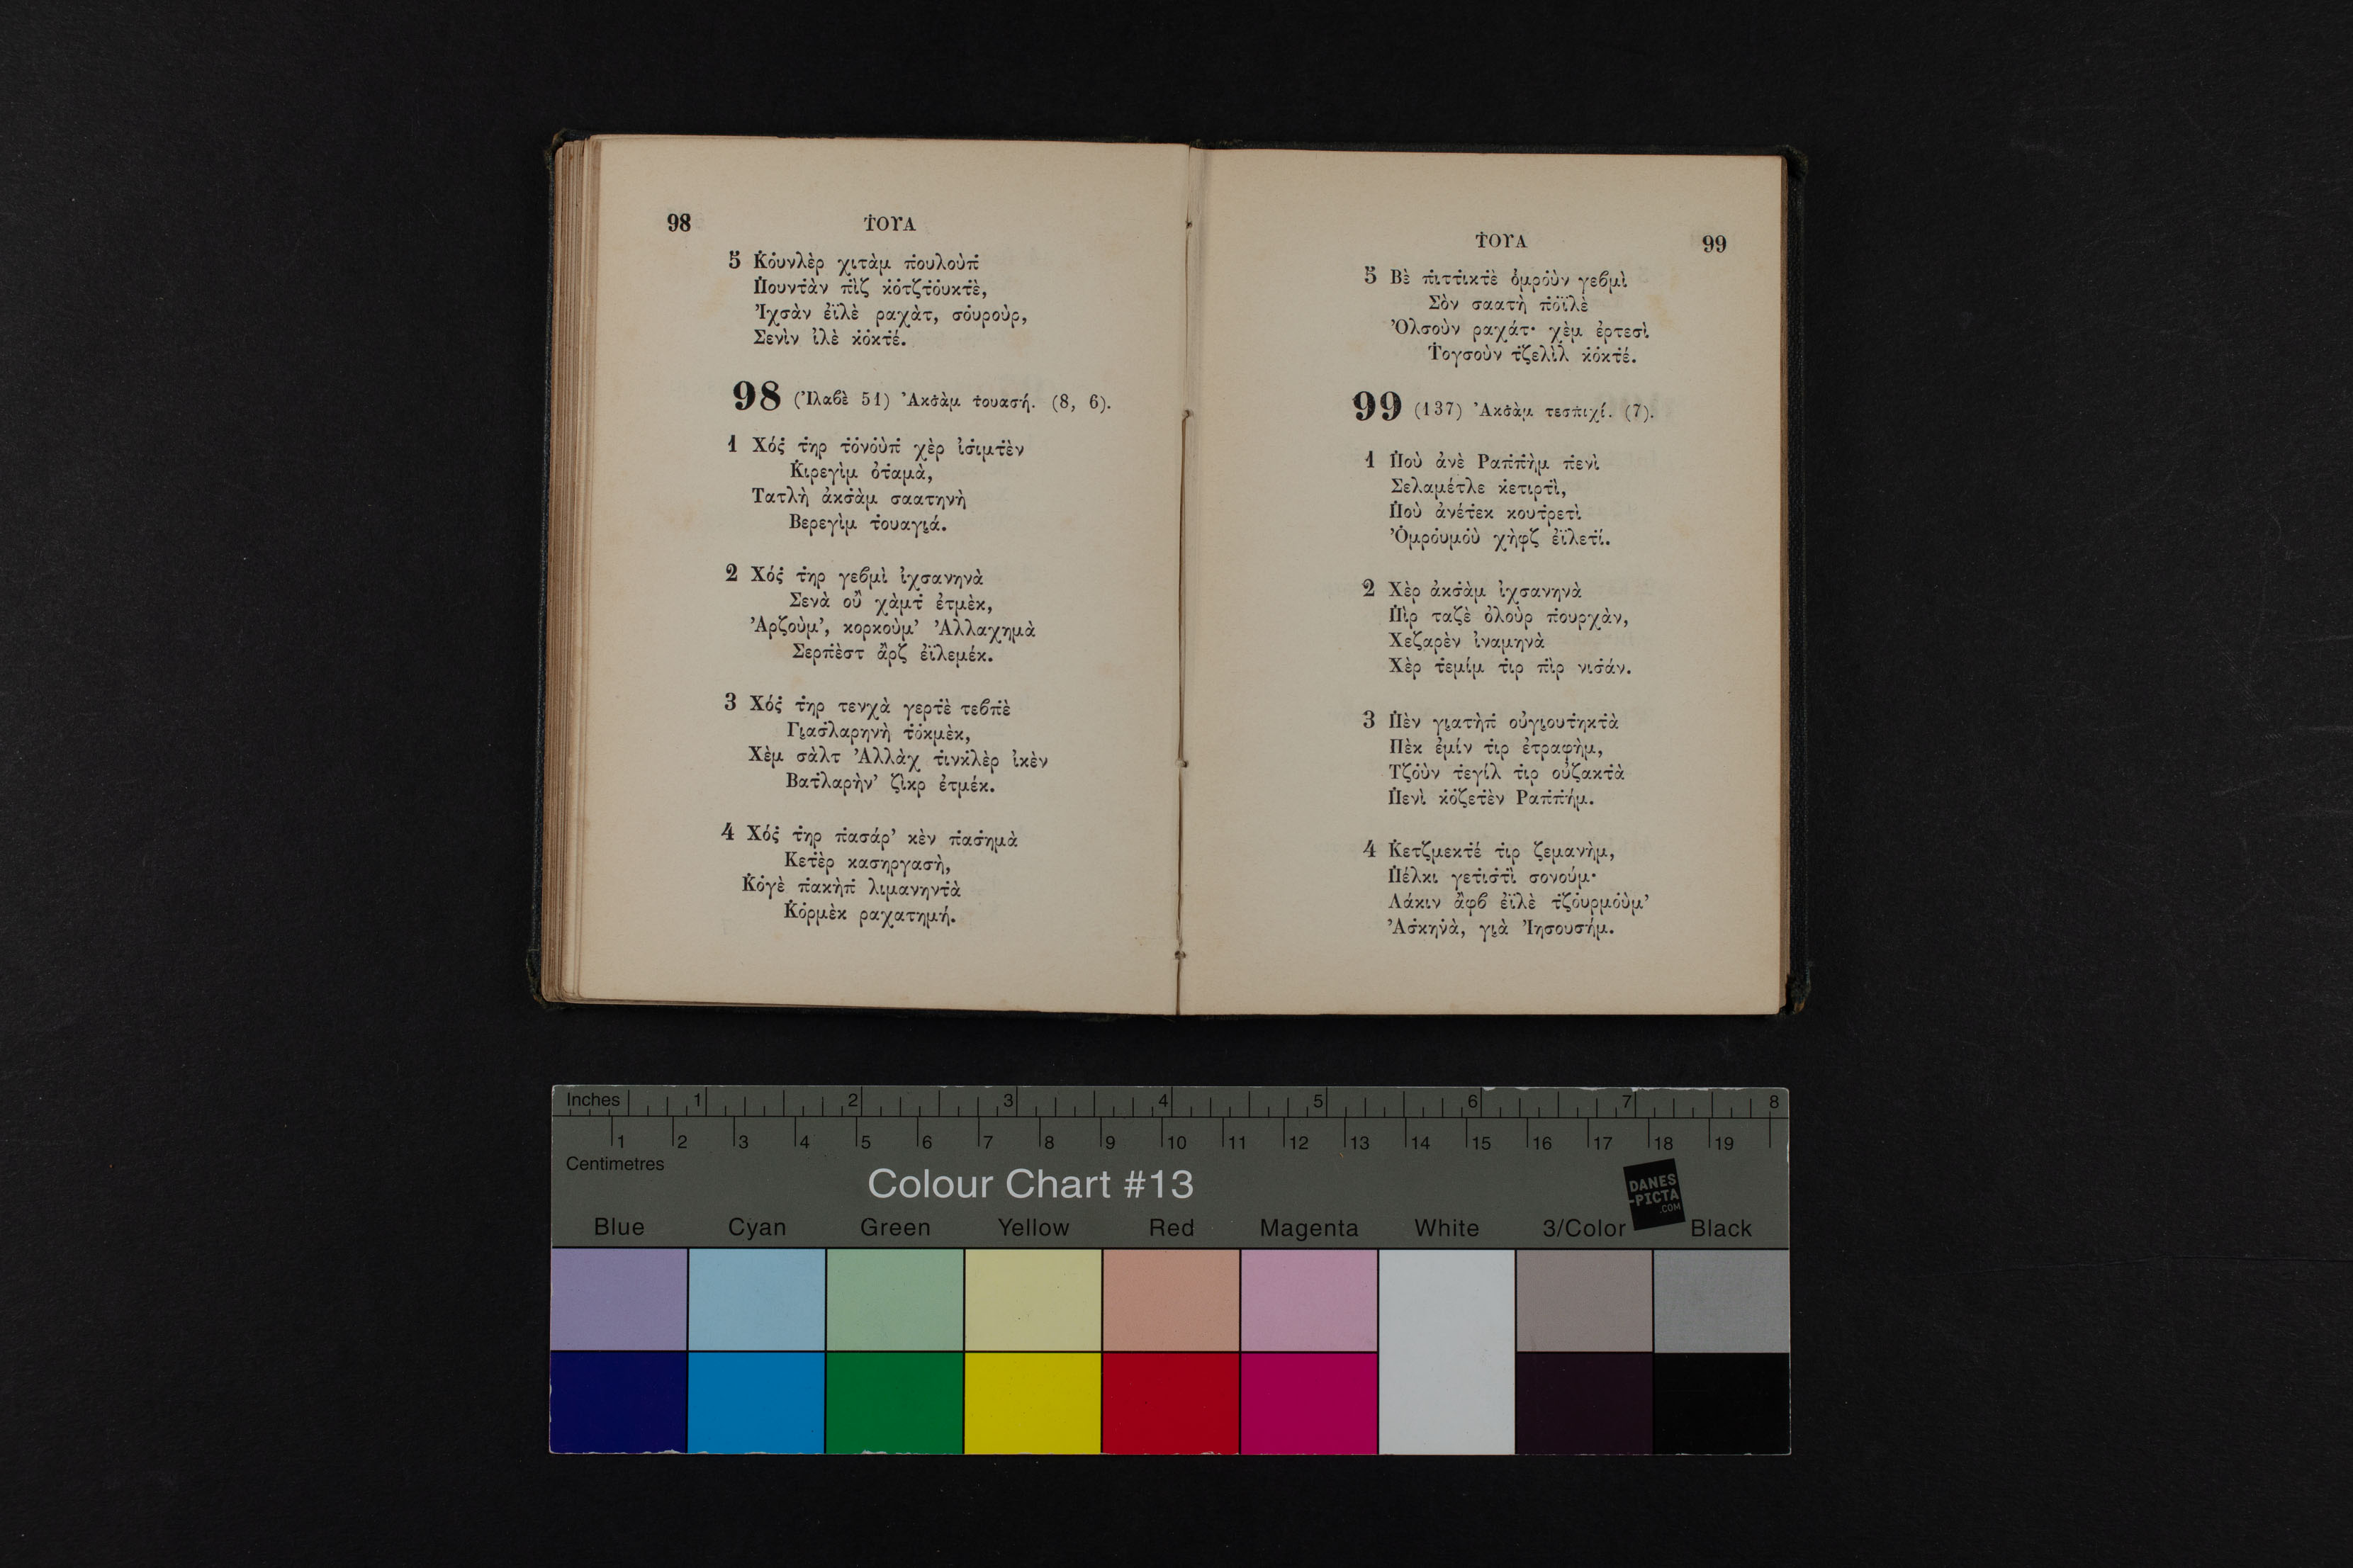 98 Ṫ̇ΟΥΑ
5 Κ̇ο̇υνλὲρ χιτὰμ π̇ουλοὺπ̇
Π̇ουντ̇ὰν π̇ὶζ κ̇ο̇τζτ̇ο̇υκτ̇ὲ,
Ἰχσὰν ἐϊλὲ ραχὰτ, σο̇υροὺρ,
Σενὶν ἰλὲ κ̇ο̇κτ̇έ.
98 (Ἰλαβὲ 51) Ἀκσ̇ὰμ τ̇ουασή. (8, 6).
1 Χός̇ τ̇ηρ τ̇ο̇νο̇ὺπ̇ χὲρ ἰσ̇ιμτ̇ὲν
Κ̇ιρεγὶμ ὀτ̇αμὰ,
Τατλὴ ἀκσ̇ὰμ σαατηνὴ
Βερεγὶμ τ̇ουαγι̮ά.
2 Χός̇ τ̇ηρ γεβμὶ ἰχσανηνὰ
Σενὰ οὒ χὰμτ̇ ἐτμὲκ,
Ἀρζοὺμ’, κορκοὺμ’ Ἀλλαχημὰ
Σερπ̇ὲστ ἂρζ ἐϊλεμέκ.
3 Χός̇ τ̇ηρ τενχὰ γερτ̇ὲ τεβπ̇ὲ
Γι̮ασ̇λαρηνὴ τ̇ο̇κμὲκ,
Χὲμ σὰλτ Ἀλλὰχ τ̇ινκ̇λὲρ ἰκὲν
Βατ̇λαρὴν’ ζὶκρ ἐτμέκ.
4 Χός̇ τ̇ηρ π̇ασάρ’ κὲν π̇ασ̇ημὰ
Κετ̇ὲρ κασηργασὴ,
Κ̇ο̇γὲ π̇ακὴπ̇ λιμανηντ̇ὰ
Κ̇ο̇ρμὲκ ραχατημή.
Ṫ̇ΟΥΑ 99
5 Βὲ π̇ιττικτ̇ὲ ὀ̇μρο̇ὺν γεβμὶ
Σὸν σαατὴ π̇ο̇ϊλὲ
Ὀλσοὺν ραχάτ· χὲμ ἐρτεσὶ
Τ̇ογσοὺν τ̇ζελὶλ κ̇ο̇κτ̇έ.
99 (137) Ἀκσ̇ὰμ τεσπ̇ιχί. (7).
1 Π̇οὺ ἀνὲ Ραπ̇π̇ὴμ π̇ενὶ
Σελαμέτλε κ̇ετιρτ̇ὶ,
Π̇οὺ ἀνέτ̇εκ κουτ̇ρετὶ
Ὀ̇μρο̇υμο̇ὺ χὴφζ ἐϊλετ̇ί.
2 Χὲρ ἀκσ̇ὰμ ἰχσανηνὰ
Π̇ὶρ ταζὲ ὀλοὺρ π̇ουρχὰν,
Χεζαρὲν ἰναμηνὰ
Χὲρ τ̇εμίμ τ̇ιρ π̇ὶρ νισ̇άν.
3 Π̇ὲν γι̮ατὴπ̇ οὐγι̮ουτ̇ηκτ̇ὰ
Πὲκ ἐμίν τ̇ιρ ἐτραφὴμ,
Τζο̇ὺν τ̇εγίλ τ̇ιρ οὐζακτ̇ὰ
Π̇ενὶ κ̇ο̇ζετ̇ὲν Ραπ̇π̇ήμ.
4 Κ̇ετζμεκτ̇έ τ̇ιρ ζεμανὴμ,
Π̇έλκι γετ̇ισ̇τ̇ὶ σονούμ·
Λάκιν ἂφβ ἐϊλὲ τ̇ζο̇υρμο̇ὺμ’
Ἀσ̇κηνὰ, γι̮ὰ Ἰησουσήμ.
Inches 1 2 3 4 5 6 7 8
1 2 3 4 5 6 7 8 9 10 11 12 13 14 15 16 17 18 19
Centimetres
Colour Chart #13
DANES
-PICTA
.COM
Blue Cyan Green Yellow Red Magenta White 3/Color Black